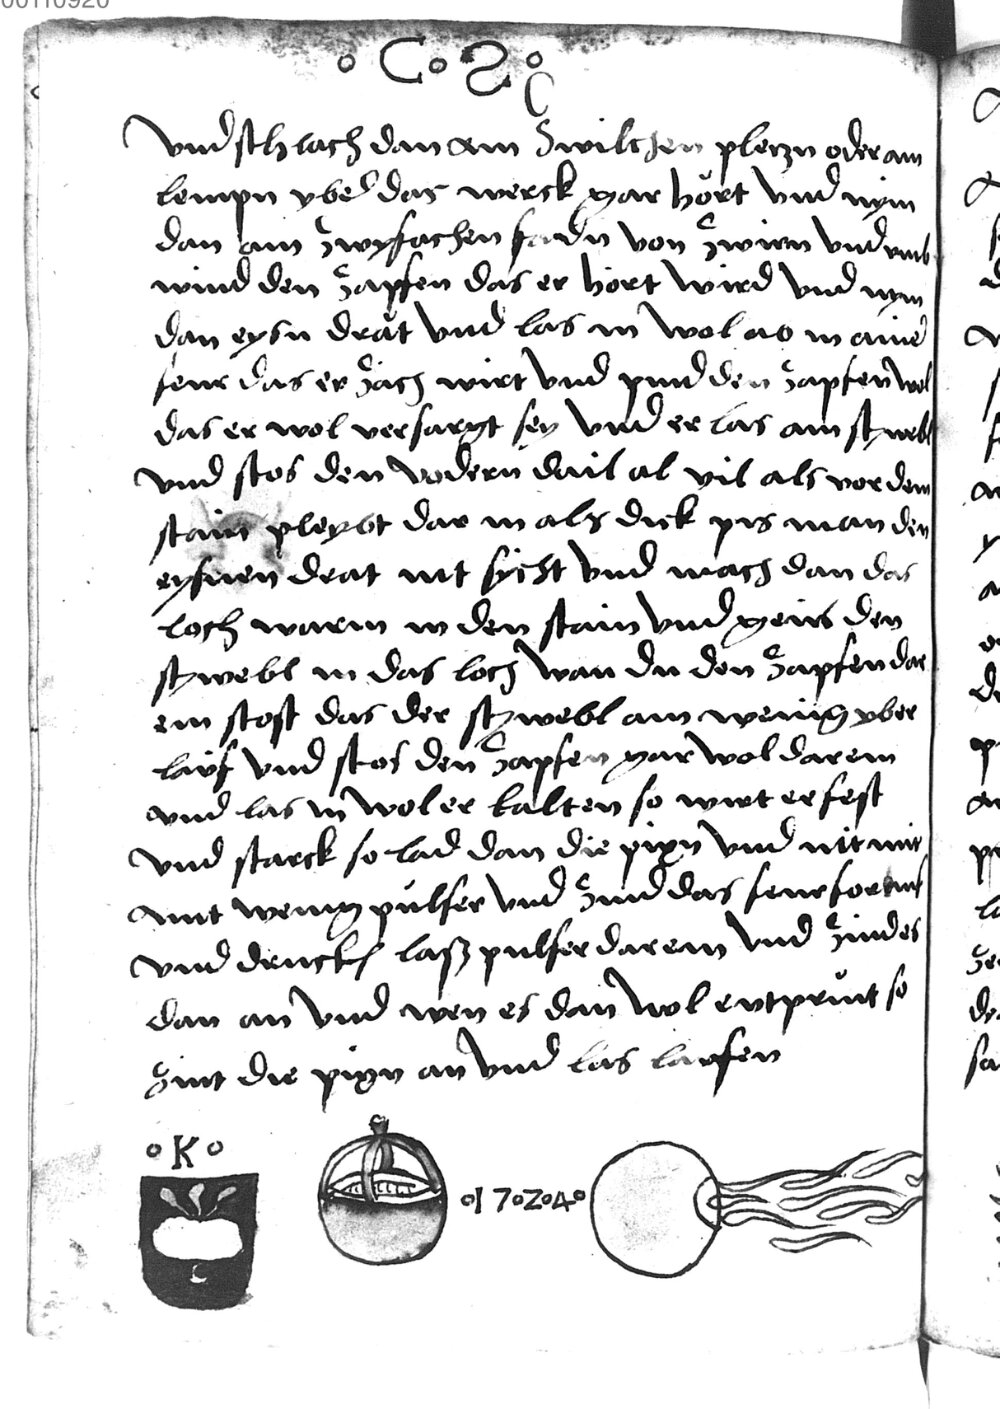 ° C ° S °
vnd schlach dan ain zwilchen pleczn oder ain
lempn yber das werck gar hört vnd nym
dan ain zwyfachen fadn von zwirn vnd vmb
wind den zapfen das er hört wird vnd nym
dan eysn drät vnd las in wol in ainer
feur das er zäch wirt vnd pind den zapfen wol
das er wol versargt sey vnd er las ain schwebl
vnd stos den vodern dail al vil als vor dem
stain pleybt dar in als dick pis man den
eysnen drat nit sycht vnd mach dan das
loch warm in den stain vnd geus den
schwebl in das loch wan du den zapfen dar
ein stost das der schwebl ain wenig yber
läuf vnd stos den zapfen gar wol darein
vnd las in wol er kalten so wirt er fest
vnd starck so lad dan die pixn vnd nit mit
wenig pulfer vnd zind das feur for
vnd druck pulfer darein vnd zindes
dan an vnd wen es dan wol entprint so
zint die pixn an vnd las laufen
° K °
° 1 7 ° 2 ° 4 °